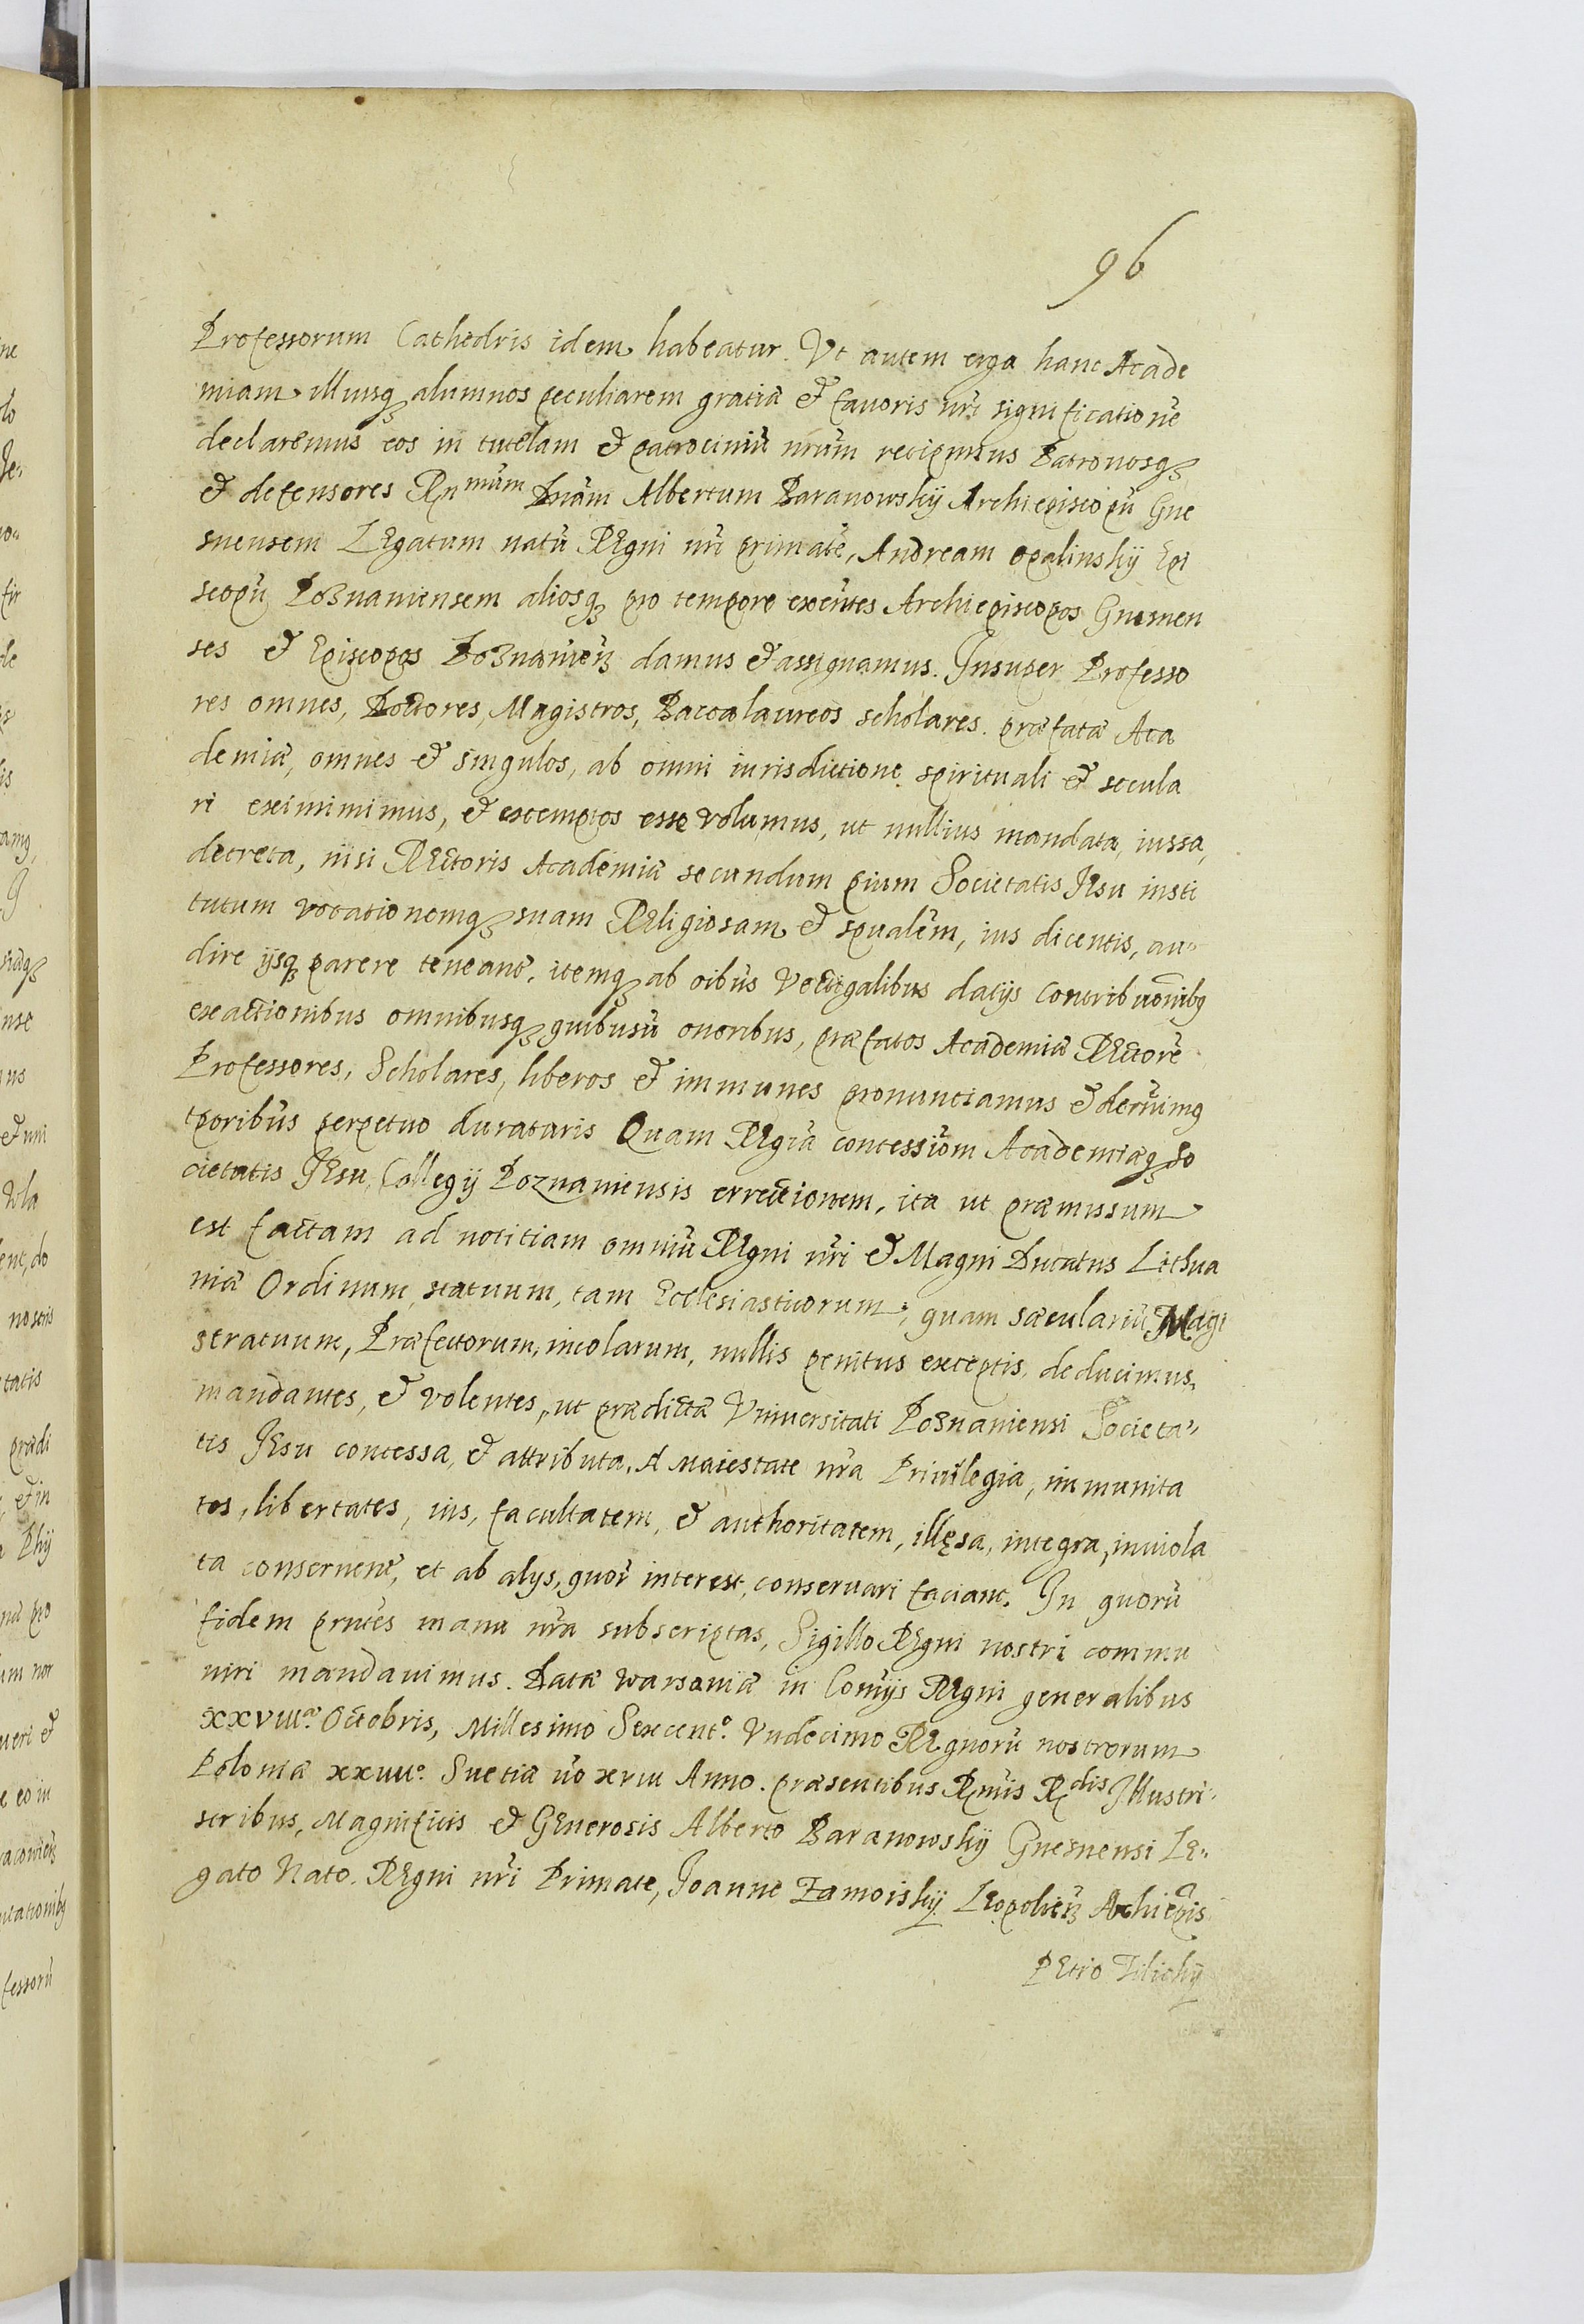 96
Professorum Cathedris idem habeatur. Vt autem erga hanc Acade
miam illiusq alumnos peculiarem gratiã & favoris nr̃i significationẽ
declaremus eos in tutelam & patrociniũ nrũm recipimus Patronosq
& defensores Rnmũm Dnũm Albertum Baranowskij Archiepiscopũ Gne
snensem Legatum natũ Regni nr̃i primatẽ, Andream Opalinskij Epi
scopũ Poznaniensem aliosq pro tempore exñtes Archiepiscopos Gnesnen
ses & Episcopos Poznanieñ damus & assignamus. Insuper Professo
res omnes, Doctores, Magistros, Baccalaureos scholares. præfatæ Aca
demiæ, omnes & singulos, ab omni iurisdictione spirituali & secula
ri eximimimus, & exemptos esse volumus, ut nullius mandata, iussa,
decreta, nisi Rectoris Academiæ secundum pium Societatis Iesu insti
tutum vocationemq suam Religiosam & spualẽm, ius dicentis, au-
dire ijsq parere teneant̃, itemq ab oĩbus Vectigalibus datijs Contribuõnibq
exactionibus omnibusq quibusũ oneribus, præfatos Academiæ Rectorẽ
Professores, Scholares, liberos & immunes pronunciamus & decrũimq
tp̃oribus perpetuo duraturis Quam Regiã concessiõm Academiæq So
cietatis Iesu, Collegij Poznaniensis errectionem, ita ut præmissum
est factam ad notitiam omniũ Regni nr̃i & Magni Ducatus Lithua
niæ Ordinum, statuum, tam Ecclesiasticorum, quam sæculariũ Magi
stratuum, Præfectorum, incolarum, nullis penitus exceptis, deducimus,
mandantes, & volentes, ut prædictæ Vniversitati Poznaniensi Societa-
tis Iesu concessa, & attributa, A Maiestate nr̃a Privilegia, immunita
tes, libertates, ius, facultatem, & authoritatem, illęsa, integra, inviola
ta conservent̃, et ab alys, quor̃ interest, conservari faciant. In quorũ
fidem prñtes manu nr̃a subscriptas, Sigillo Regni nostri commu
niri mandavimus. Datæ Warsaviæ in Comijs Regni generalibus
XXVIII.ª Octobris, Millesimo Sexcent.º Vndecimo Regnorũ nostrorum
Poloniæ XXIIII.º Suetiæ v̈o XVIII Anno. præsentibus Rmis Rdis Illustri-
stribus, Magnificis & Generosis Alberto Baranowskij Gnesnensi Le-
gato Nato. Regni nr̃i Primate, Joanne Zamoiskij Leopolieñ Archiepis
Petro Tilickij